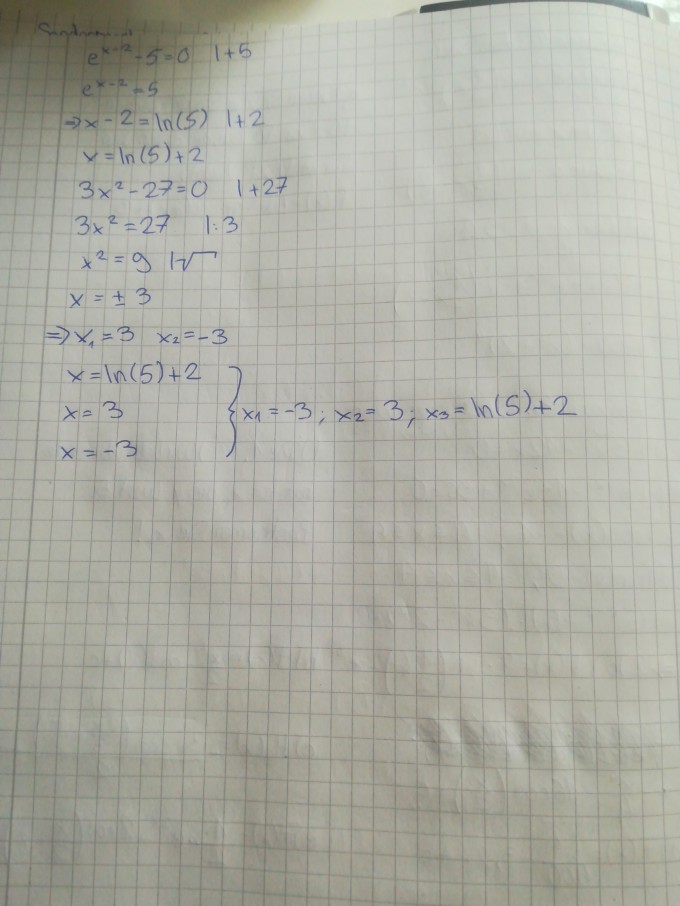 e^(x-2) - 5 = 0 | + 5
e^(x-2) = 5
⇒ x - 2 = ln(5) | + 2
x = ln(5) + 2
3x² - 27 = 0 | + 27
3x² = 27 | : 3
x² = 9 | √
x = ± 3
⇒ x₁ = 3 x₂ = -3
x = ln(5) + 2
x = 3
x = -3
} x₁ = -3 ; x₂ = 3 ; x₃ = ln(5) + 2